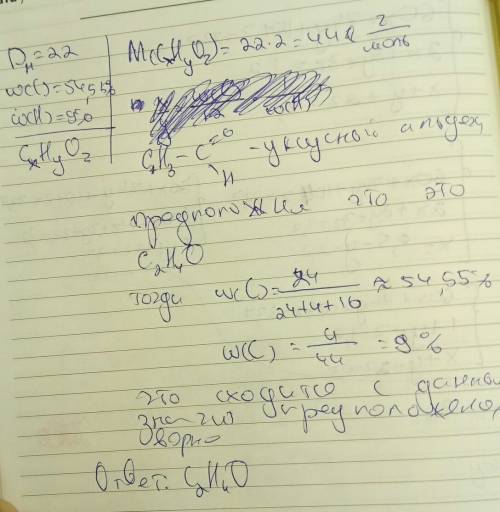 D_H = 22
w(C) = 54,55%
w(H) =
CxHyOz
M(CxHyOz) = 22·2 = 44 г/моль
CH3 - C =O - уксусный альдег
H
предположим что это
C2H4O
тогда w(C) = 24/(24+4+16) ≈ 54,55%
w(C) = 4/44 = 9%
это сходится с данным
значит предположено
верно
Ответ: C2H4O